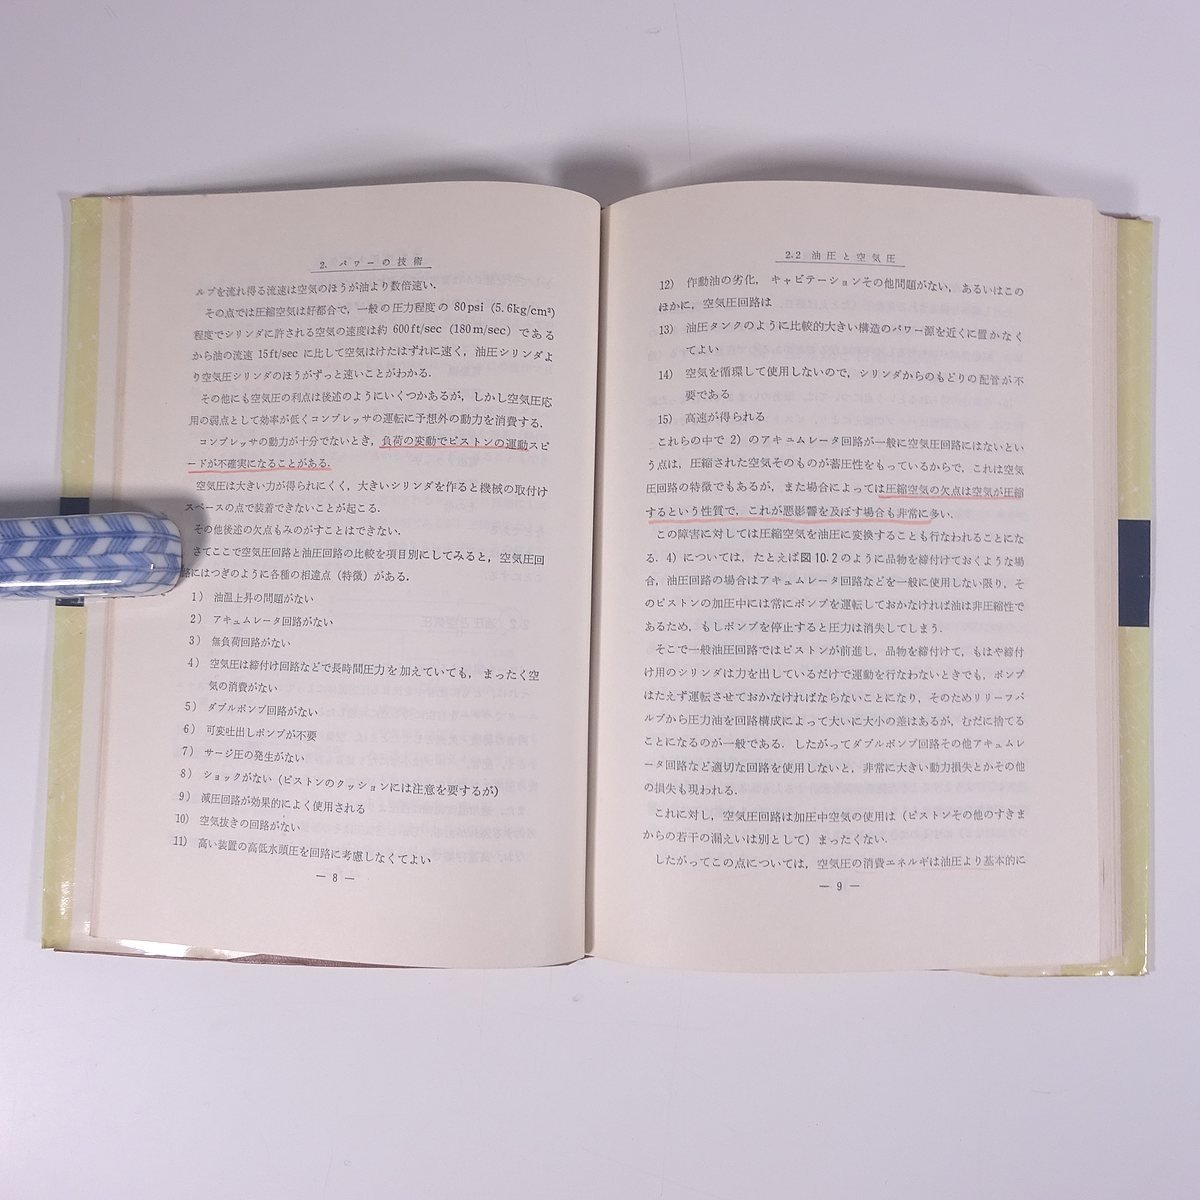 2. パワーの技術
ルブを流れ得る流速は空気のほうが油より数倍速い.
その点では圧縮空気は好都合で, 一般の圧力程度の 80psi (5.6kg/cm²)
程度でシリンダに許される空気の速度は約 600ft/sec (180m/sec) である
から油の流速 15ft/sec に比して空気はけたはずれに速く, 油圧シリンダよ
り空気圧シリンダのほうがずっと速いことがわかる.
その他にも空気圧の利点は後述のようにいくつかあるが, しかし空気圧応
用の弱点として効率が低くコンプレッサの運転に予想外の動力を消費する.
コンプレッサの動力が十分でないとき, 負荷の変動でピストンの運動スピ
ードが不確実になることがある.
空気圧は大きい力が得られにくく, 大きいシリンダを作ると機械の取付け
スペースの点で装着できないことが起こる.
その他後述の欠点もみのがすことはできない.
さてここで空気圧回路と油圧回路の比較を項目別にしてみると, 空気圧回
路にはつぎのように各種の相違点 (特徴) がある.
1) 油温上昇の問題がない
2) アキュムレータ回路がない
3) 無負荷回路がない
4) 空気圧は締付け回路などで長時間圧力を加えていても, まったく空
気の消費がない
5) ダブルポンプ回路がない
6) 可変吐出しポンプが不要
7) サージ圧の発生がない
8) ショックがない (ピストンのクッションには注意を要するが)
9) 減圧回路が効果的によく使用される
10) 空気抜きの回路がない
11) 高い装置の高低水頭圧を回路に考慮しなくてよい
— 8 —
2.2 油圧と空気圧
12) 作動油の劣化, キャビテーションその他問題がない, あるいはこの
ほかに, 空気圧回路は
13) 油圧タンクのように比較的大きい構造のパワー源を近くに置かなく
てよい
14) 空気を循環して使用しないので, シリンダからのもどりの配管が不
要である
15) 高速が得られる
これらの中で 2) のアキュムレータ回路が一般に空気圧回路にはないとい
う点は, 圧縮された空気そのものが蓄圧性をもっているからで, これは空気
圧回路の特徴でもあるが, また場合によっては圧縮空気の欠点は空気が圧縮
するという性質で, これが悪影響を及ぼす場合も非常に多い.
この障害に対しては圧縮空気を油圧に変換することも行なわれることにな
る. 4) については, たとえば図 10.2 のように品物を締付けておくような場
合, 油圧回路の場合はアキュムレータ回路などを一般に使用しない限り, そ
のピストンの加圧中には常にポンプを運転しておかなければ油は非圧縮性で
あるため, もしポンプを停止すると圧力は消失してしまう.
そこで一般油圧回路ではピストンが前進し, 品物を締付けて, もはや締付
け用のシリンダは力を出しているだけで運動を行なわないときでも, ポンプ
はたえず運転させておかなければならないことになり, そのためリリーフバ
ルブから圧力油を回路構成によって大いに大小の差はあるが, むだに捨てる
ことになるのが一般である. したがってダブルポンプ回路その他アキュムレ
ータ回路など適切な回路を使用しないと, 非常に大きい動力損失とかその他
の損失も現われる.
これに対し, 空気圧回路は加圧中空気の使用は (ピストンその他のすきま
からの若干の漏えいは別として) まったくない.
したがってこの点については, 空気圧の消費エネルギは油圧より基本的に
— 9 —